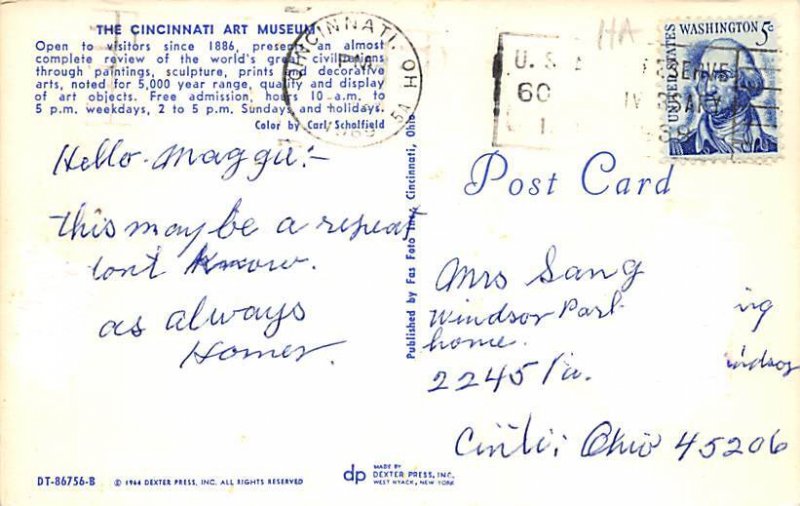 THE CINCINNATI ART MUSEUM
Open to visitors since 1886, presents an almost
complete review of the world's great civilizations
through paintings, sculpture, prints and decorative
arts, noted for 5,000 year range, quality and display
of art objects. Free admission, hours 10 a.m. to
5 p.m. weekdays, 2 to 5 p.m. Sundays and holidays.
Color by Carl Scholfield
CINCINNATI, OH
PM
1969
HA
U.S.
60
WASHINGTON 5c
UNITED STATES
Hello Maggie:-
this may be a repeat
Don't Know.
as always
Homer.
Published by Fas Foto Inc., Cincinnati, Ohio
Post Card
Mrs Sang
Windsor Park
home.
2245
Cinti, Ohio 45206
DT-86756-B
© 1964 DEXTER PRESS, INC. ALL RIGHTS RESERVED
dp
MADE BY
DEXTER PRESS, INC.
WEST NYACK, NEW YORK